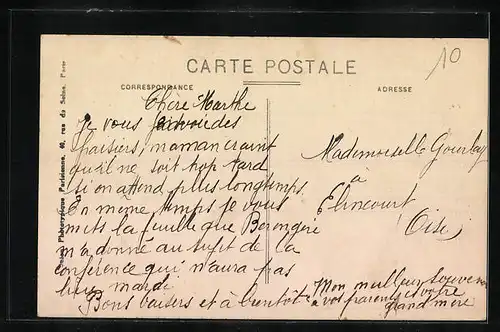 10
CARTE POSTALE
CORRESPONDANCE
ADRESSE
Chère Marthe
Je vous envoie des
fraisiers, maman craint
qu'il ne soit trop tard
si on attend plus longtemps.
En même temps je vous
mets la feuille que Bérengère
m'a donné au sujet de la
conférence qui n'aura pas
lieu mardi
Bons baisers et à bientôt
Mon meilleur souvenir
à vos parents et votre
grand mère
Mademoiselle Gourlay
à
Elincourt
Oise
Phototypique Parisienne, 60, rue de Seine, Paris